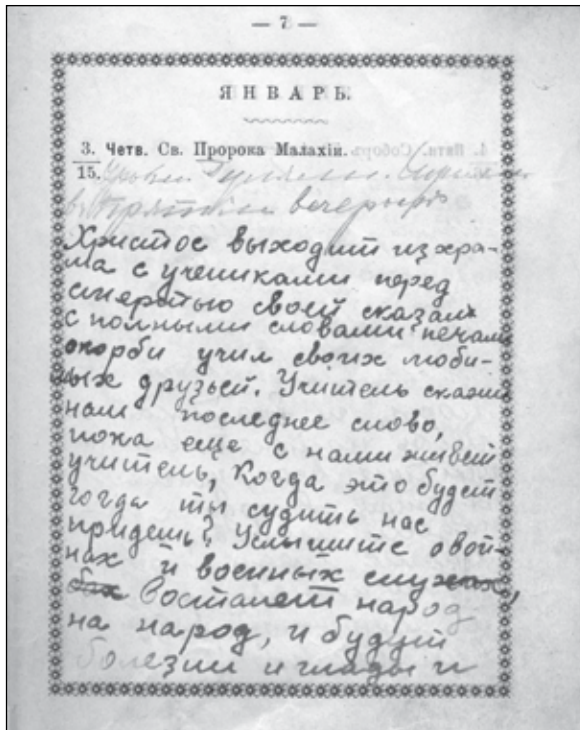 — 7 —
ЯНВАРЬ.
3. Четв. Св. Пророка Малахіи.
15.
вечерыръ
Христос выходит из хра-
ма с учениками перед
смертью своей сказал
с полными словами печали
скорби учил своих люби-
мых друзьей. Учитель скажи
нам последнее слово,
пока еще с нами живеш
учитель, Когда это будет
когда ты судить нас
придешь? Услышите о вой-
нах и военных слухах,
Востанет народ
на народ, и будут
болезни и глады и